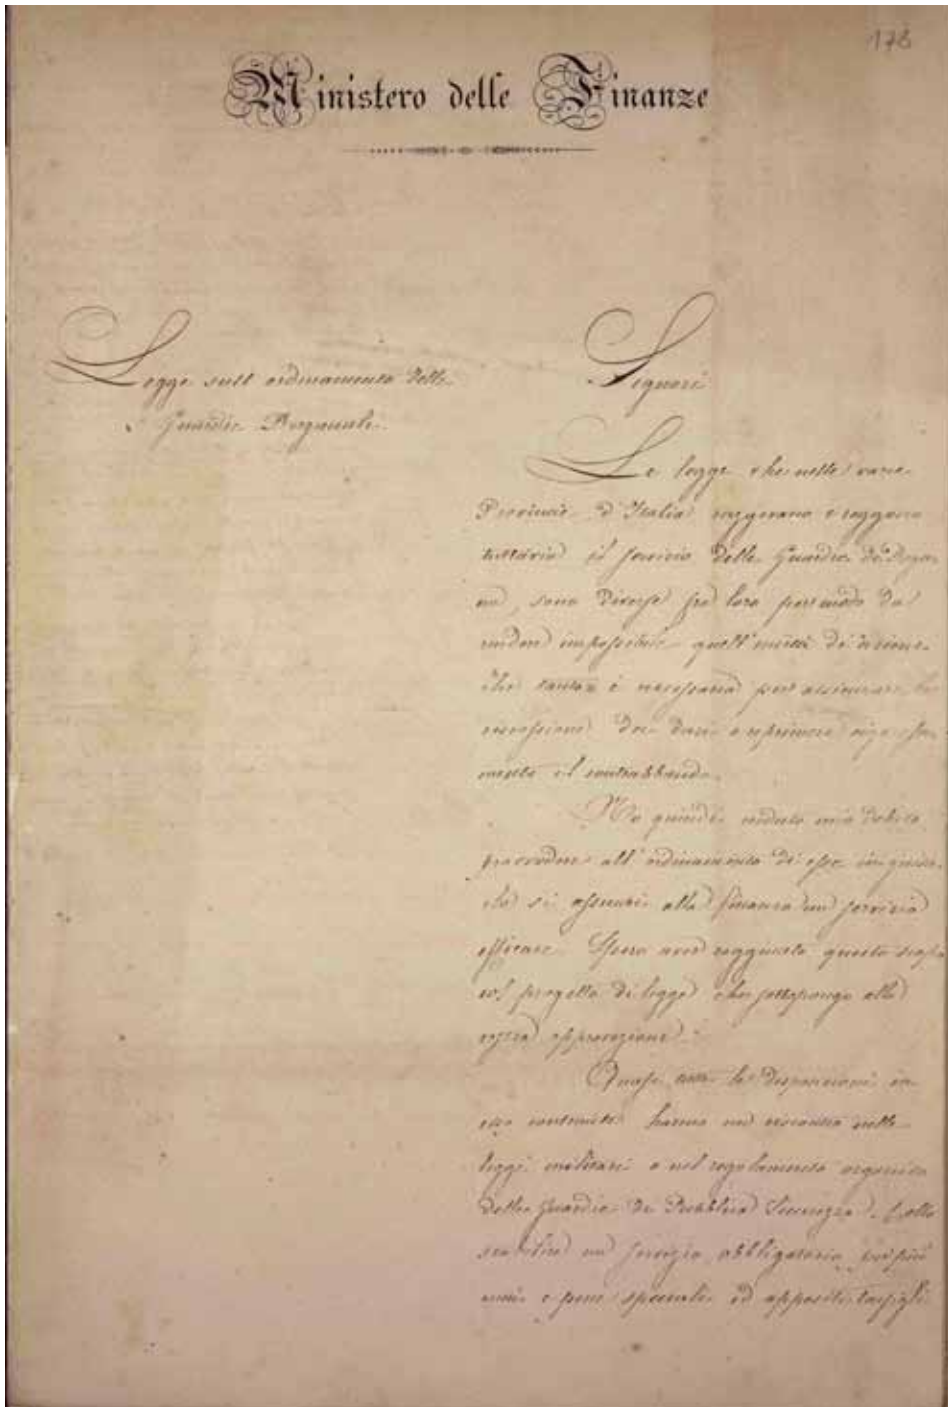 178
Ministero delle Finanze
Legge sull'ordinamento delle
Guardie Doganali.
Signori
Le leggi che nelle varie
Provincie d'Italia reggevano e reggono
tuttavia il servizio delle Guardie di Doga-
na, sono diverse fra loro per modo da
render impossibile quell'unità di azione
che tanto è necessaria per assicurare la
riscossione dei dazi e reprimere
mente il contrabbando.
Ho quindi creduto mio debito
provvedere all'ordinamento di esse in guisa
che si assicuri alla finanza un servizio
efficace. Spero aver raggiunto questo scopo
col progetto di legge che sottopongo alla
vostra approvazione.
Quasi tutte le disposizioni in
esso contenute hanno un riscontro nelle
leggi militari e nel regolamento organico
delle Guardie di Pubblica Sicurezza. Collo
stabilire un servizio obbligatorio per più
anni e pene speciali ed appositi Consigli